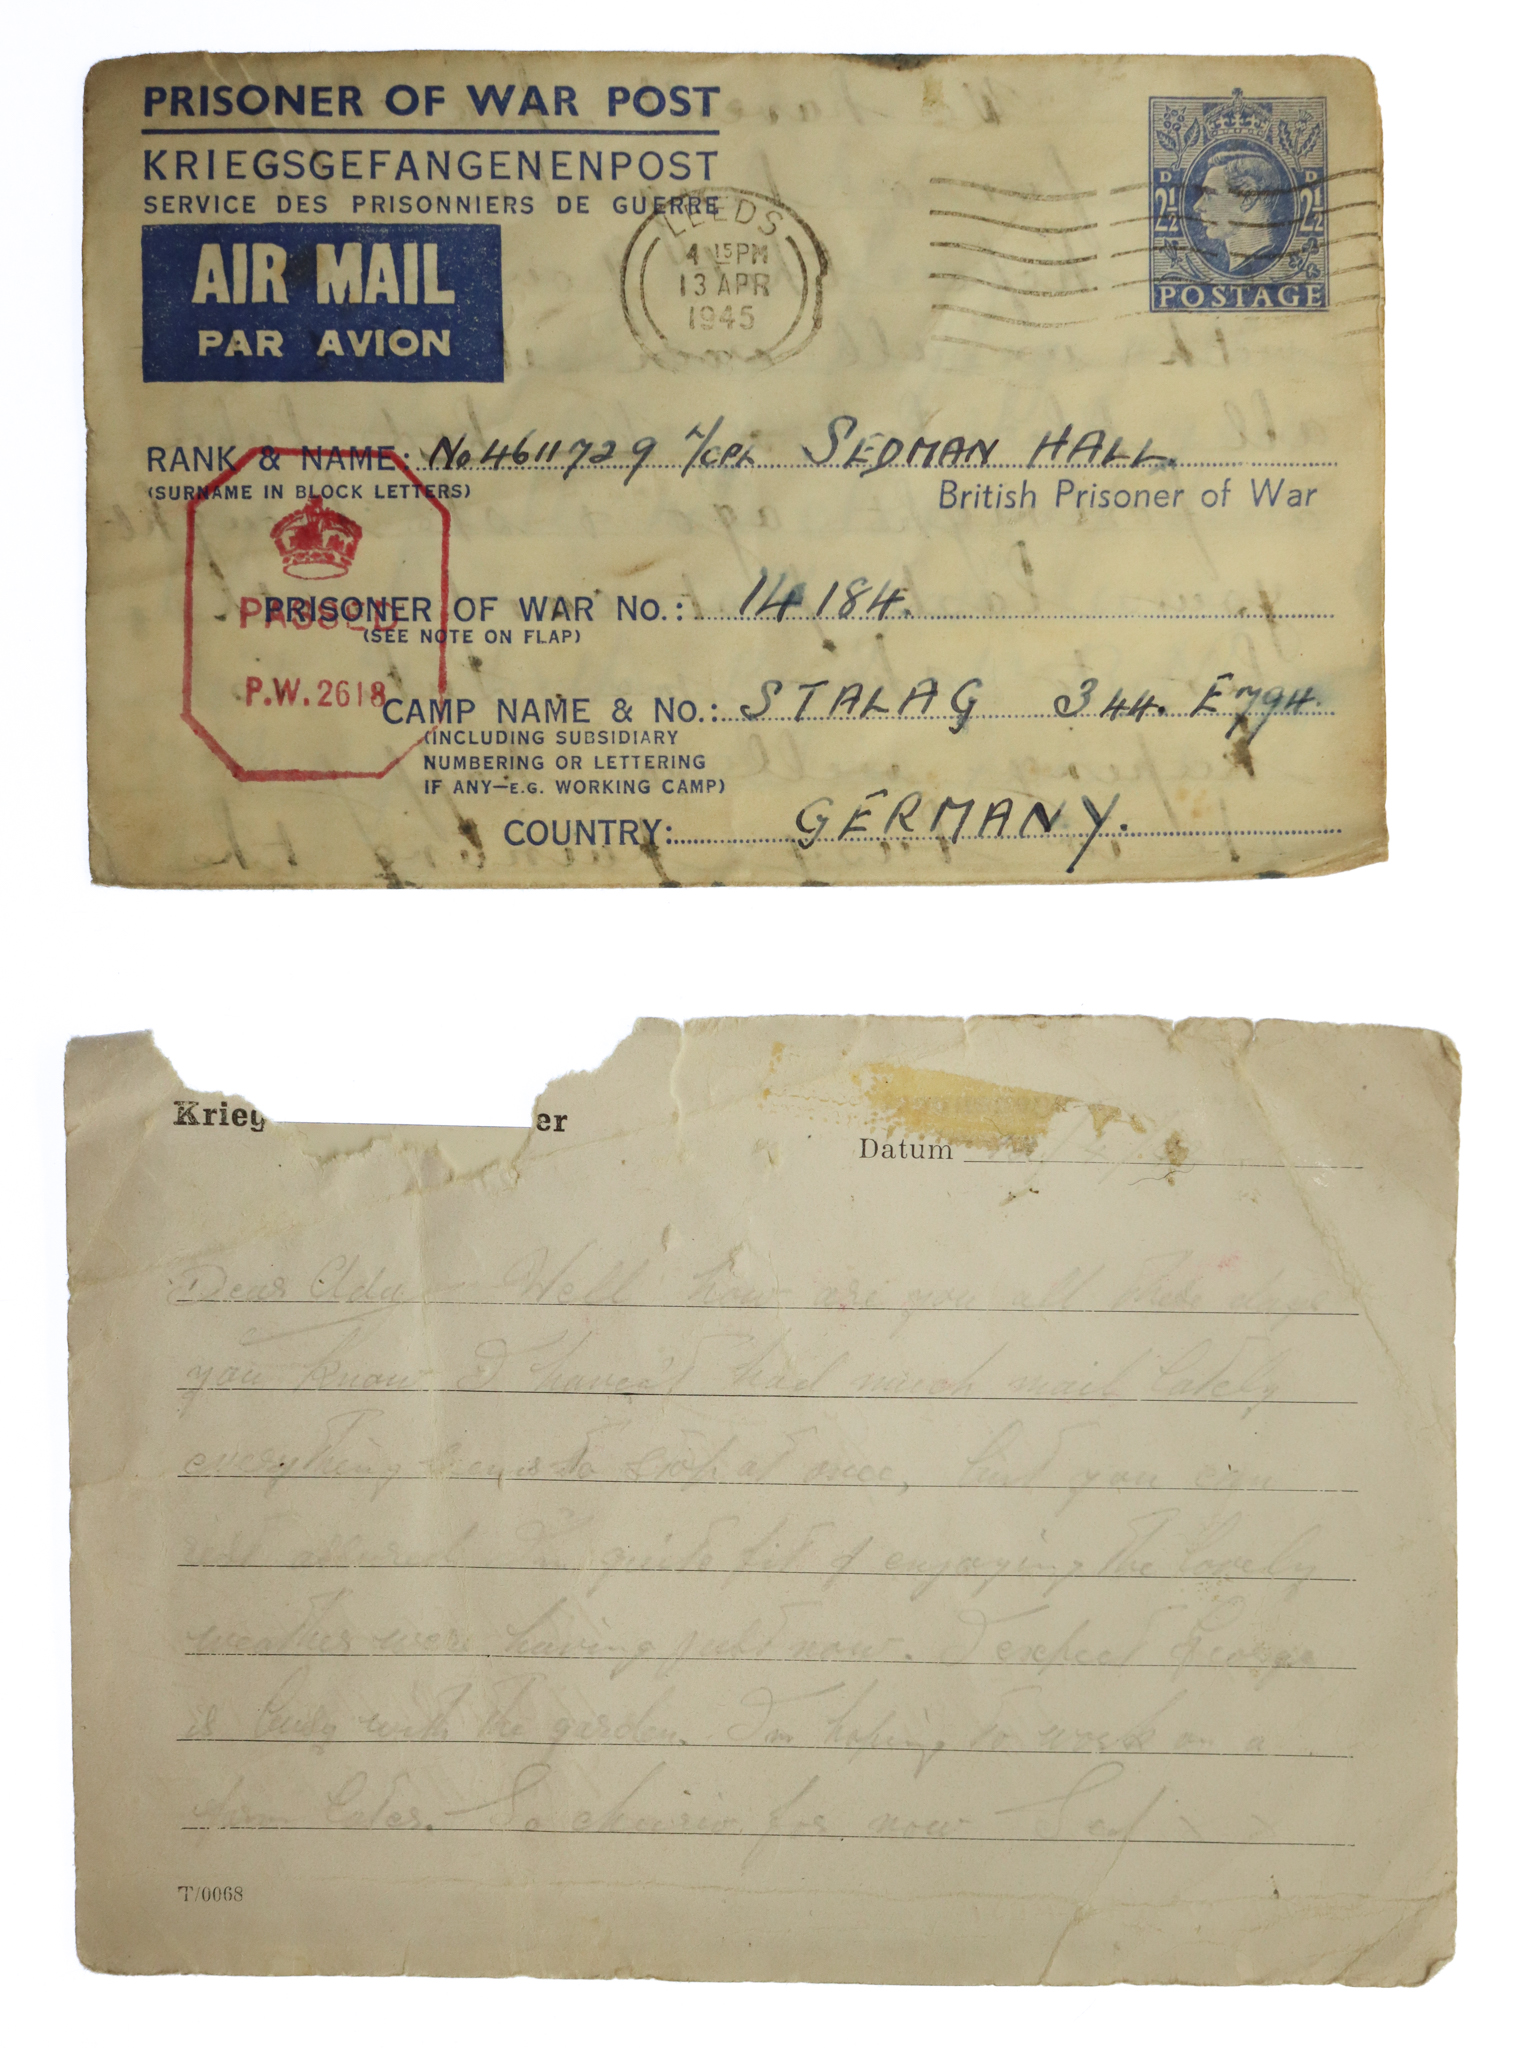 PRISONER OF WAR POST
KRIEGSGEFANGENENPOST
SERVICE DES PRISONNIERS DE GUERRE
AIR MAIL
PAR AVION
LEEDS
4 15PM
13 APR
1945
D D
2½ 2½
POSTAGE
RANK & NAME: No 4611729 L/CPL SEDMAN HALL.
(SURNAME IN BLOCK LETTERS)
British Prisoner of War
PASSED
P.W. 2618
PRISONER OF WAR No.: 14184.
(SEE NOTE ON FLAP)
CAMP NAME & No.: STALAG 344. E794.
(INCLUDING SUBSIDIARY
NUMBERING OR LETTERING
IF ANY—E.G. WORKING CAMP)
COUNTRY: GERMANY.
Krieg er
Datum
Dear Ada Well how are you all these days
you know I haven't had much mail lately
everything seems to stop at once, but you can
rest assured I'm quite fit & enjoying the lovely
weather were having just now. I expect George
is busy with the garden. I'm hoping to work on a
farm later. So cheerio for now Sed x x
T/0068